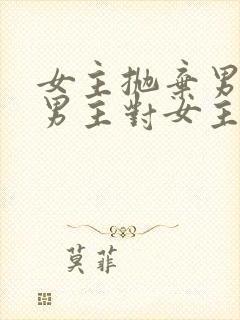 女主拋棄男
男主對女主
莫菲